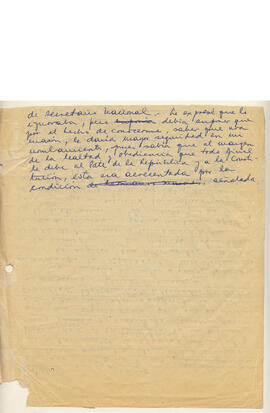 de Secretario Nacional.- Le expresé que lo
ignoraba, pero suponía debía suponer que
por el hecho de conocerme, saber que era
masón, le daría mayor seguridad en mi
nombramiento, pues sabía que al margen
de la lealtad y obediencia que todo
debe al Pdte de la República y a la Consti-
tución, esta era acrecentada por la
condición señalada